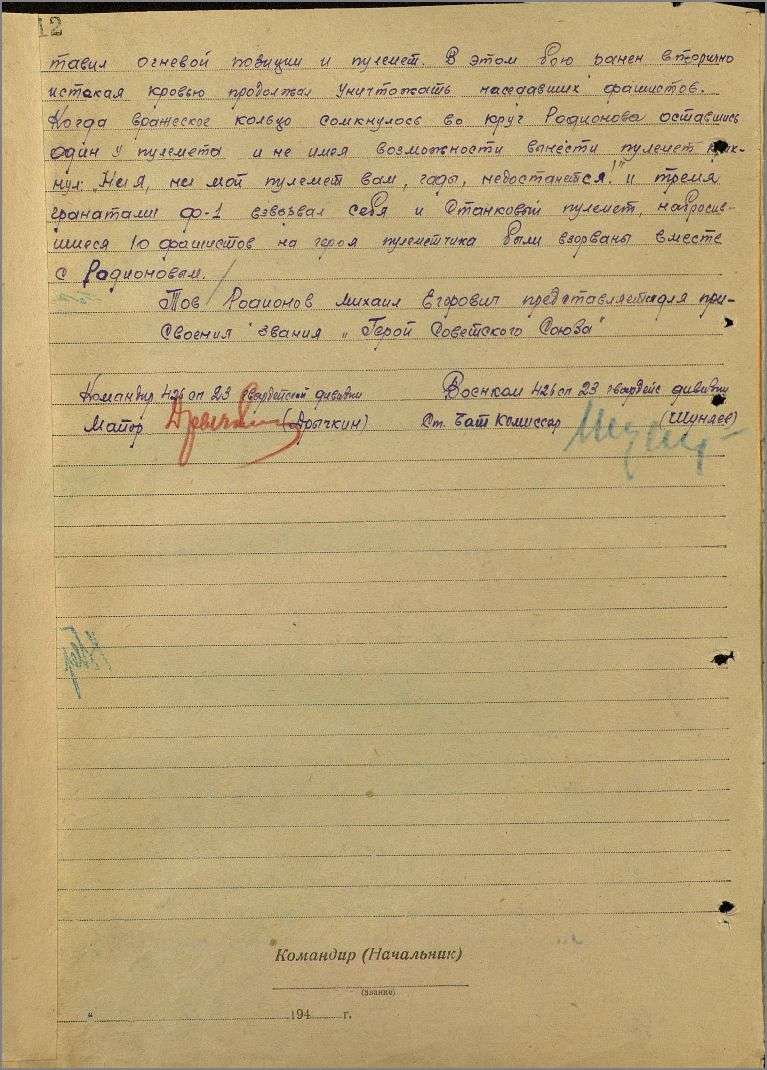 12
тавил огневой позиции и пулемет. В этом бою ранен вторично
истекая кровью продолжал уничтожать наседавших фашистов.
Когда вражеское кольцо сомкнулось во круг Радионова оставшись
один у пулемета и не имея возможности вынести пулемет крик-
нул: "Ни я, ни мой пулемет вам, гады, недостанется!" и тремя
гранатами Ф-1 взорвал себя и станковый пулемет, набросив-
шиеся 10 фашистов на героя пулеметчика были взорваны вместе
с Радионовым.
Тов Родионов Михаил Егорович представляется для при-
своения звания „Герой Советского Союза"
Командир 426 сп 23 гвардейской дивизии
Майор (Дрычкин)
Военком 426 сп 23 гвардейс дивизии
Ст. Бат Комиссар (Шуняев)
Командир (Начальник)
(звание)
„ 194 г.